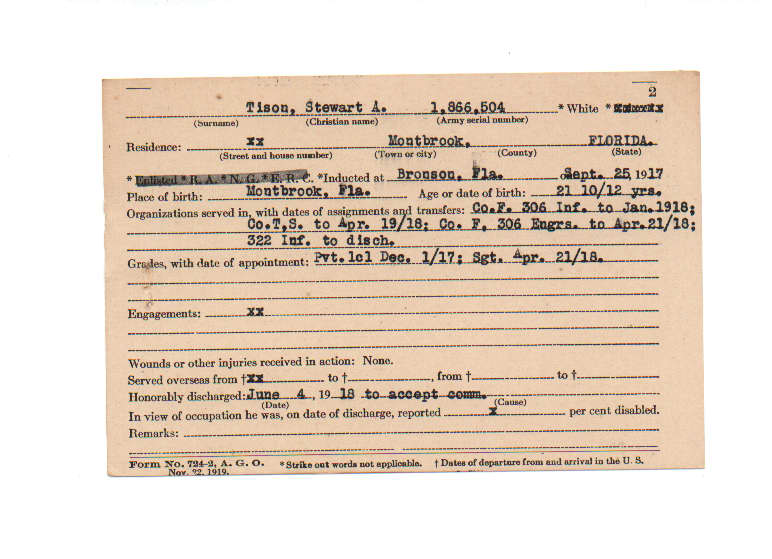 2
Tison, Stewart A. 1,866,504 * White *
(Surname) (Christian name) (Army serial number)
Residence: xx Montbrook, FLORIDA.
(Street and house number) (Town or city) (County) (State)
* Enlisted * R. A. * N. G. * E. R. C. *Inducted at Bronson, Fla. o Sept. 25, 1917
Place of birth: Montbrook, Fla. Age or date of birth: 21 10/12 yrs.
Organizations served in, with dates of assignments and transfers: Co.F. 306 Inf. to Jan.1918;
Co.T,S. to Apr. 19/18; Co. F, 306 Engrs. to Apr.21/18;
322 Inf. to disch.
Grades, with date of appointment: Pvt.1cl Dec. 1/17; Sgt. Apr. 21/18.
Engagements: xx
Wounds or other injuries received in action: None.
Served overseas from †xx to †, from † to †
Honorably discharged: June 4, 1918 to accept comm.
(Date) (Cause)
In view of occupation he was, on date of discharge, reported x per cent disabled.
Remarks:
Form No. 724-2, A. G. O. *Strike out words not applicable. † Dates of departure from and arrival in the U. S.
Nov. 22, 1919.